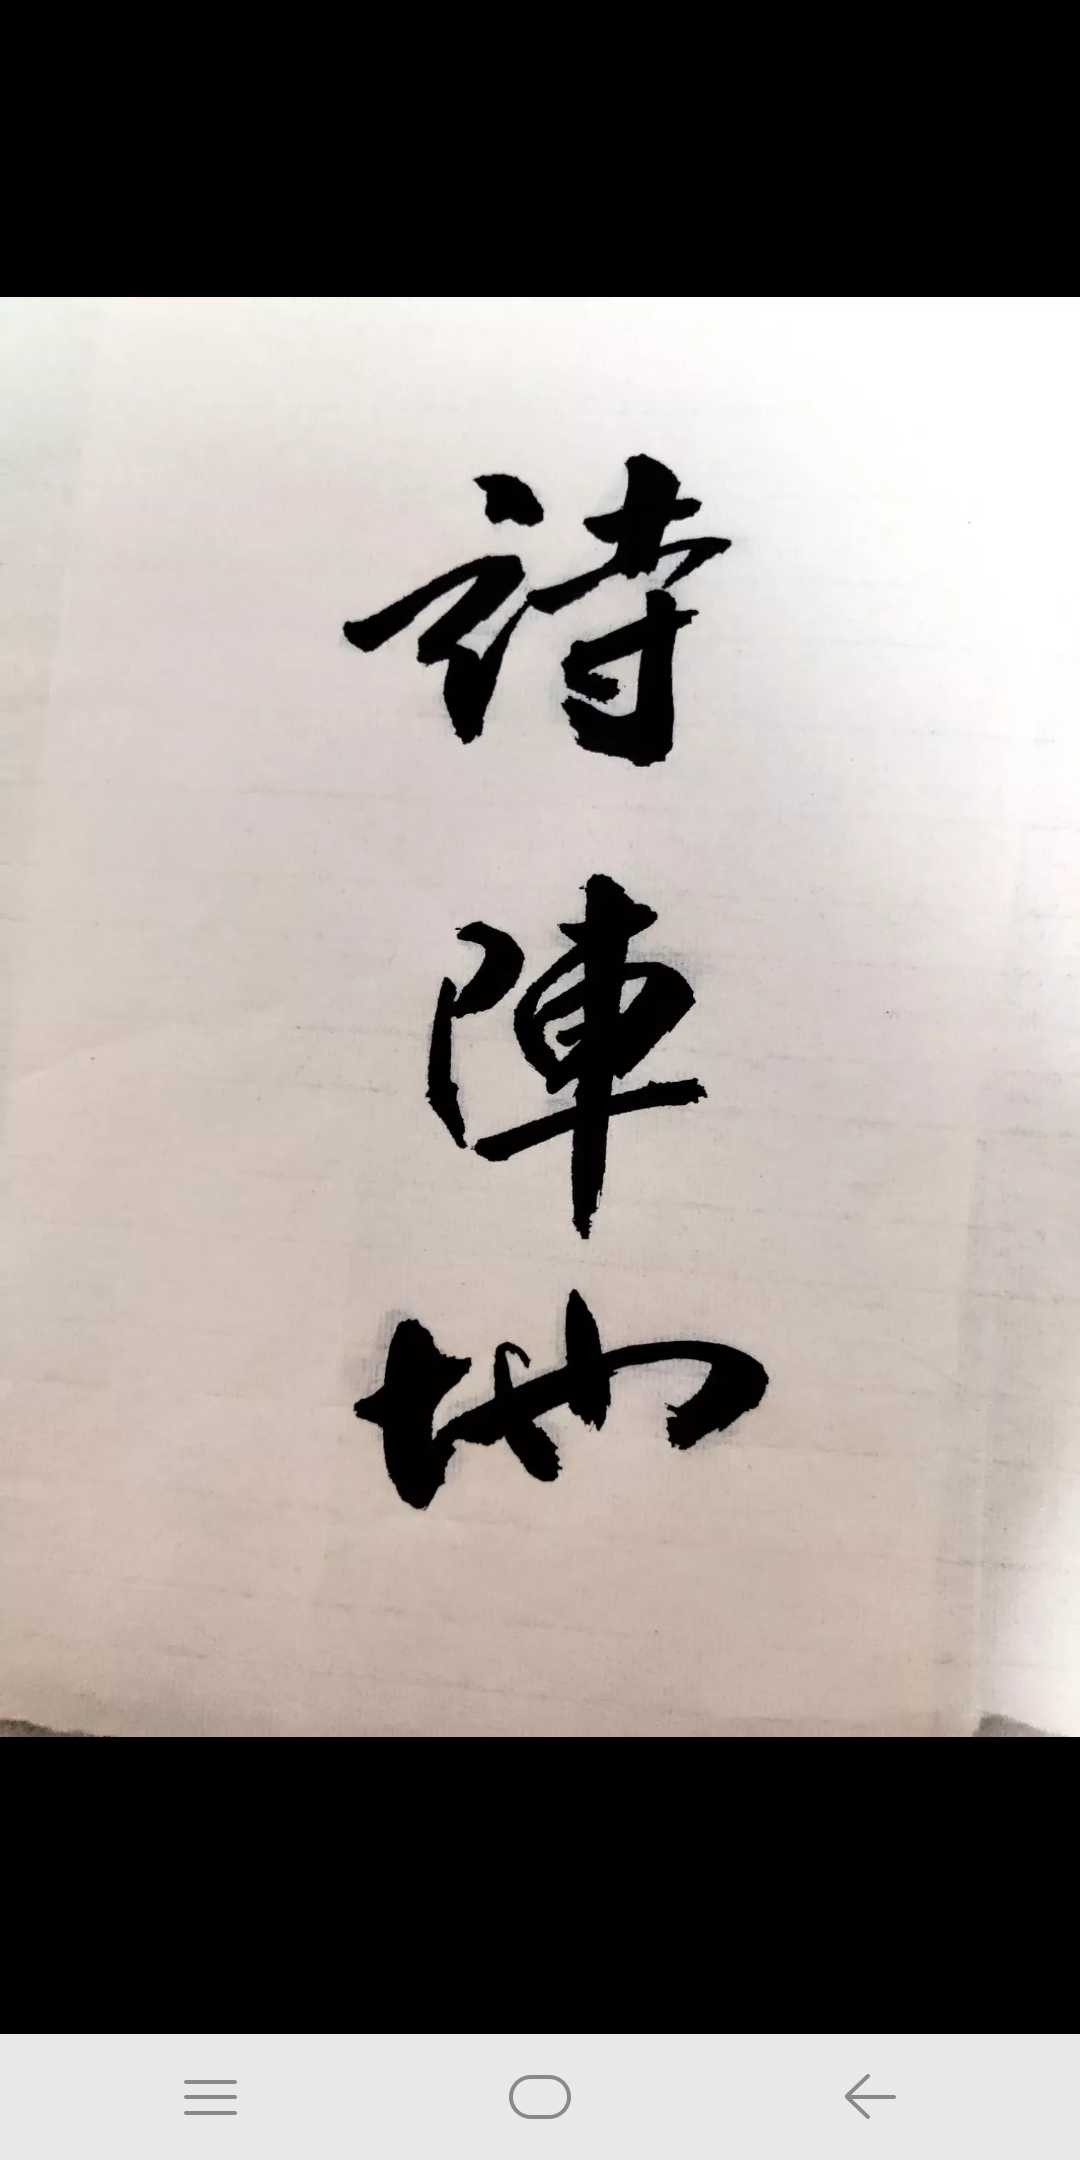 詩陣地